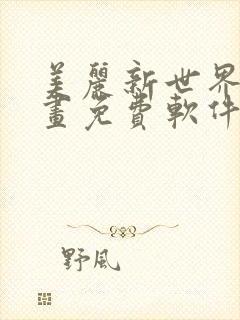 美麗新世界
畫免費軟件
野風